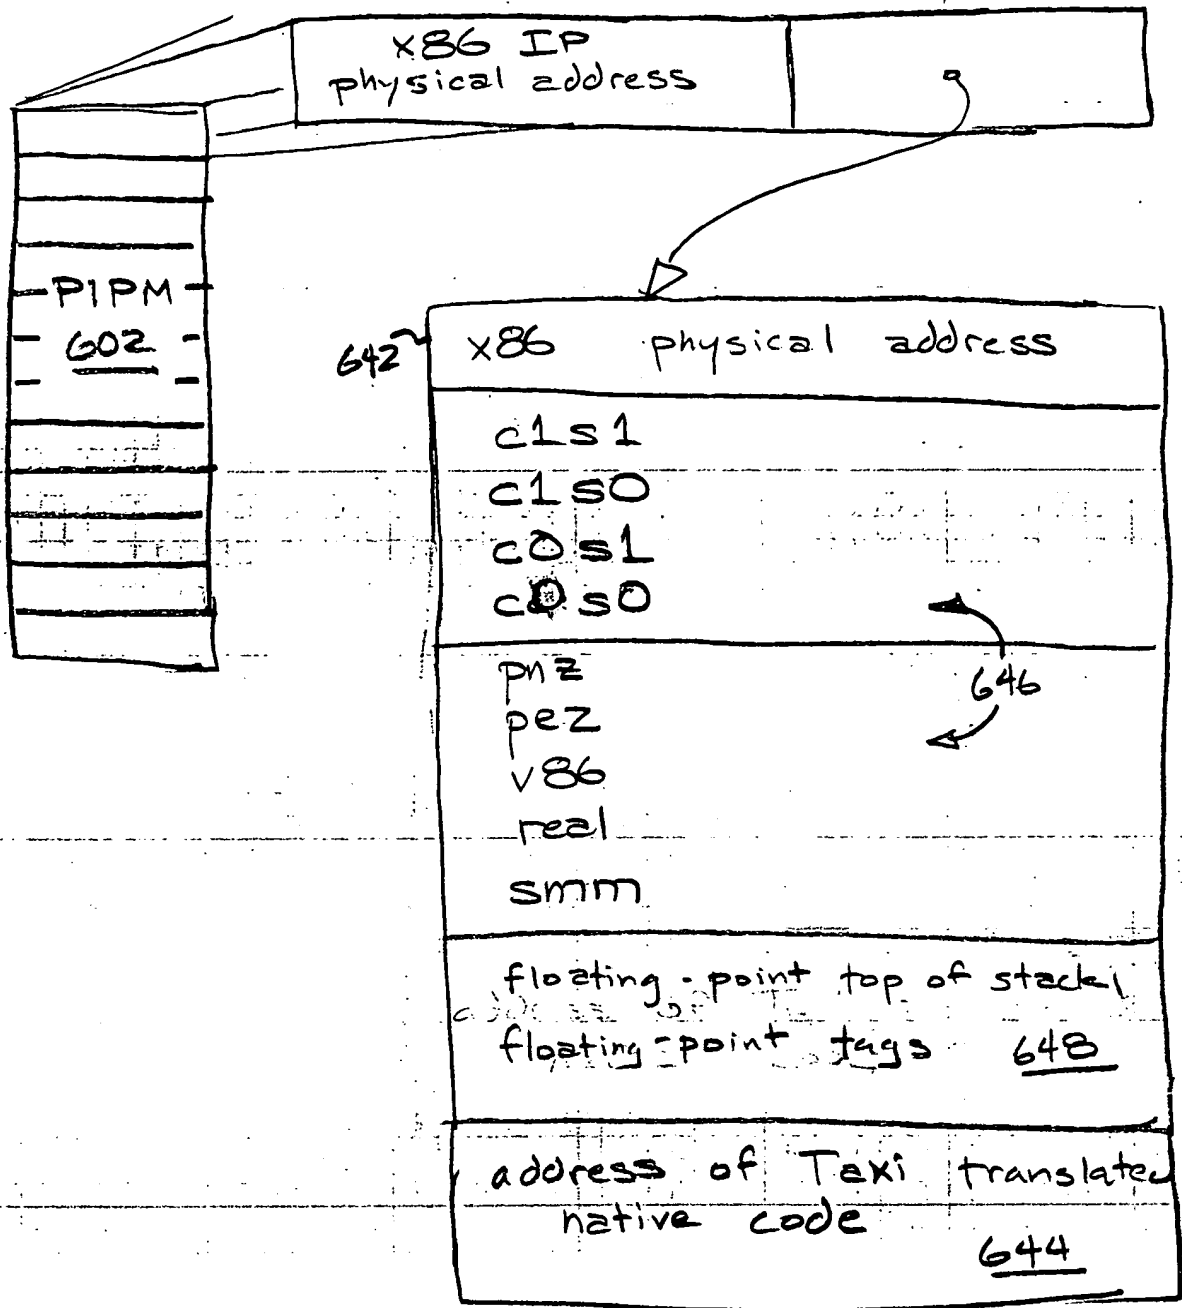 x86 IP
physical address
PIPM
602
642
x86 physical address
c1s1
c1s0
c0s1
c0s0
646
pnz
pez
v86
real
smm
floating-point top of stack
floating-point tags 648
address of Taxi translated
native code
644